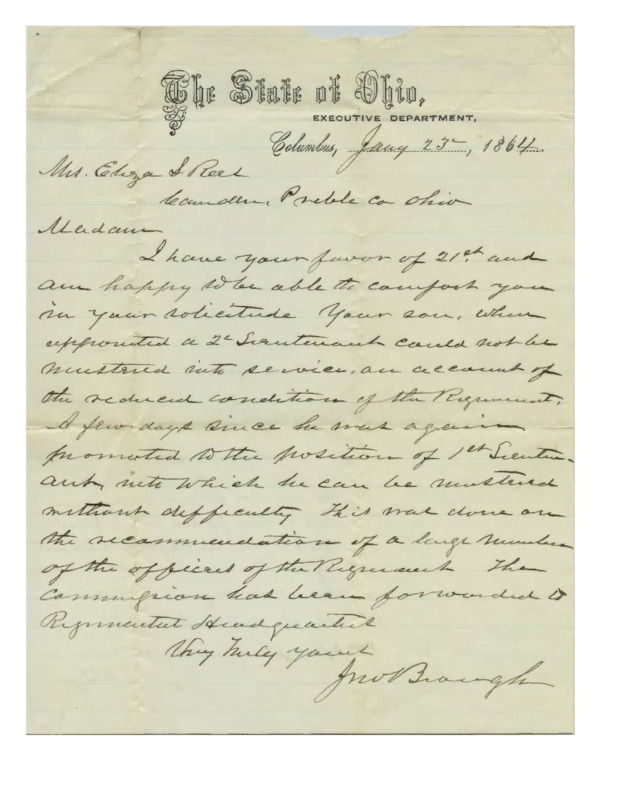 The State of Ohio,
EXECUTIVE DEPARTMENT,
Columbus, Jany 23d, 1864
Mrs. Eliza S Rees
Camden, Preble co Ohio
Madam
I have your favor of 21st. and
am happy to be able to comfort you
in your solicitude Your son, when
appointed a 2d Lieutenant could not be
mustered into service, on account of
the reduced condition of the Regiment.
A few days since he was again
promoted to the position of 1st Lieuten-
ant, into which he can be mustered
without difficulty This was done on
the recommendation of a large number
of the officers of the Regiment The
commission has been forwarded to
Regimental Headquarters
Very Truly yours
Jno Brough